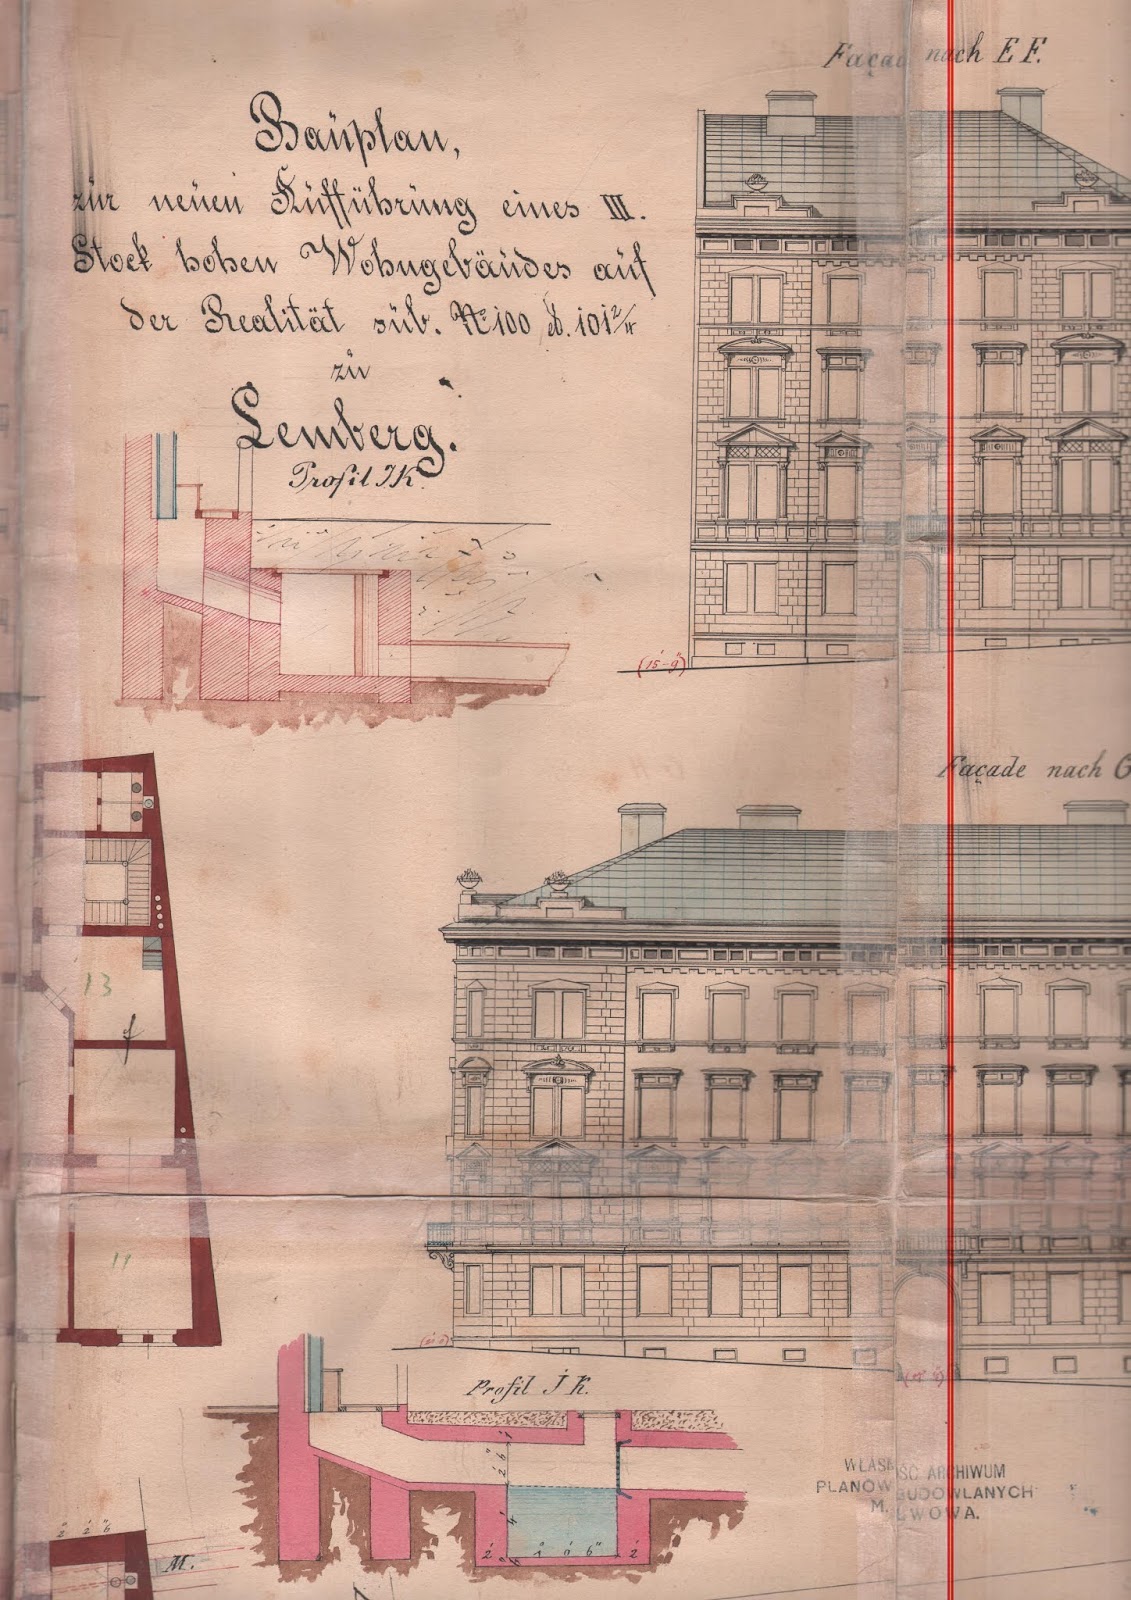 Façade nach E F.
Bauplan,
zur neuen Aufführung eines III.
Stock hohen Wohngebäudes auf
der Realität sub. No 100 & 101 2/4
zu
Lemberg.
Profil J K.
(15'-9")
Façade nach G
13
f
11
Profil J K.
WŁASNOŚĆ ARCHIWUM
PLANÓW BUDOWLANYCH
M. LWOWA.
2' 2' 6"
M.
1'
2' 6"
4'
2' 6" 2'